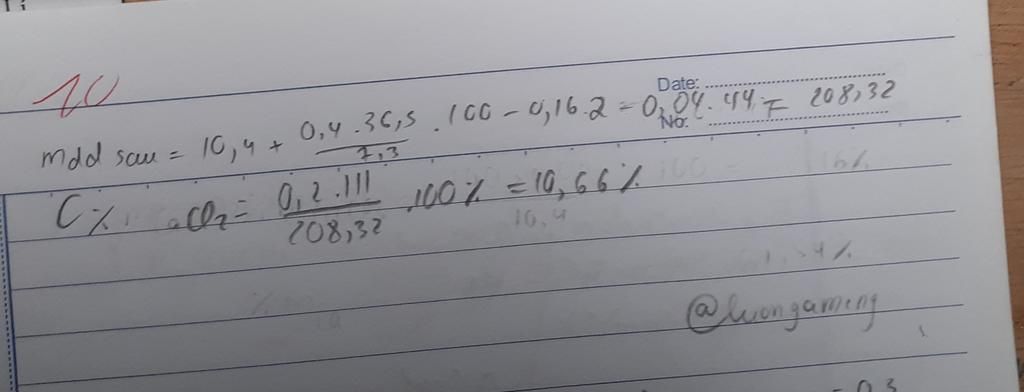 10
Date:
mdd sau = 10,4 + 0,4 . 36,5 / 7,3 . 100 - 0,16.2 = 0,04.44 = 208,32
No:
C% aCl2 = 0,2.111 / 208,32 .100% = 10,66%
10,4
@luongameng
0,3